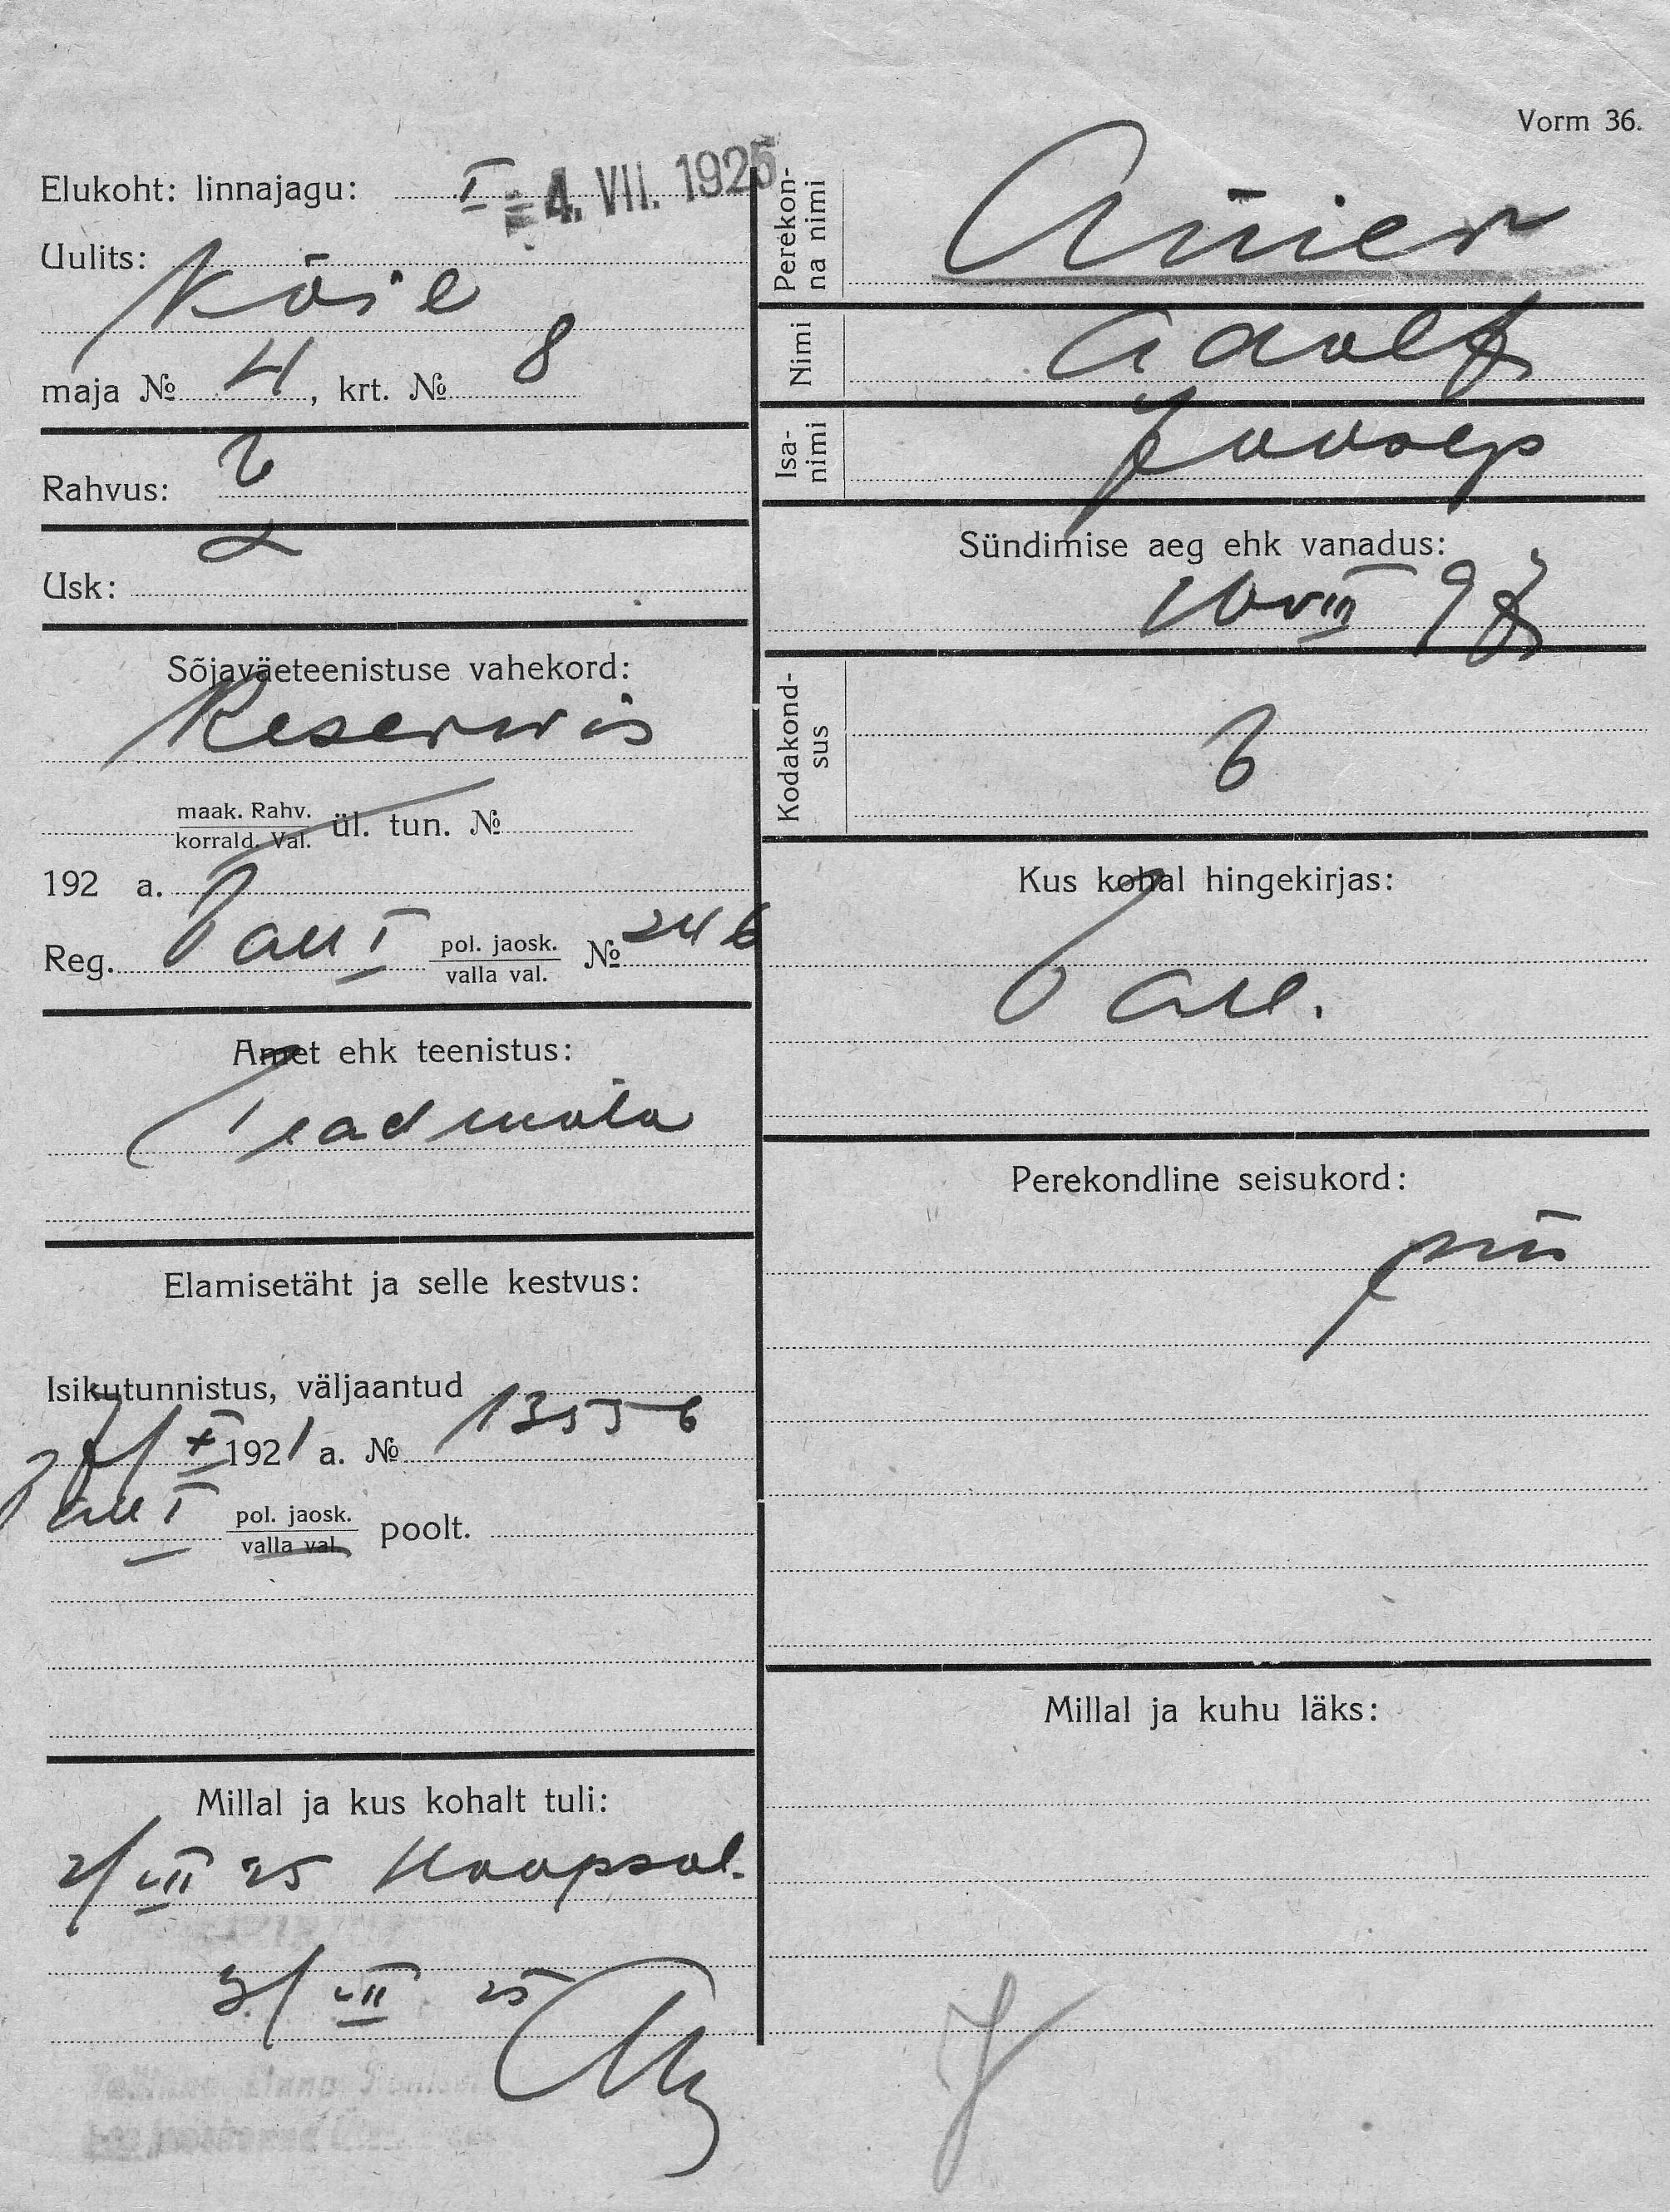 Vorm 36.
Elukoht: linnajagu: I
= 4. VII. 1925
Uulits:
Kõie
maja № 4, krt. № 8
Rahvus:
Usk:
Sõjaväeteenistuse vahekord:
Reservvis
maak. Rahv.
korrald. Val. ül. tun. №
192 a.
Reg. Tall I pol. jaosk. № 246
valla val.
Amet ehk teenistus:
Teadmata
Elamisetäht ja selle kestvus:
Isikutunnistus, väljaantud
X 1921 a. № 13556
Tall I pol. jaosk. poolt.
valla val.
Millal ja kus kohalt tuli:
2/VII 25 Haapsal.
3/VII 25
Perekonna nimi
Nimi Adolf
Isanimi Joosep
Sündimise aeg ehk vanadus:
10 VIII 97
Kodakondsus
Kus kohal hingekirjas:
Tall.
Perekondline seisukord:
Millal ja kuhu läks: